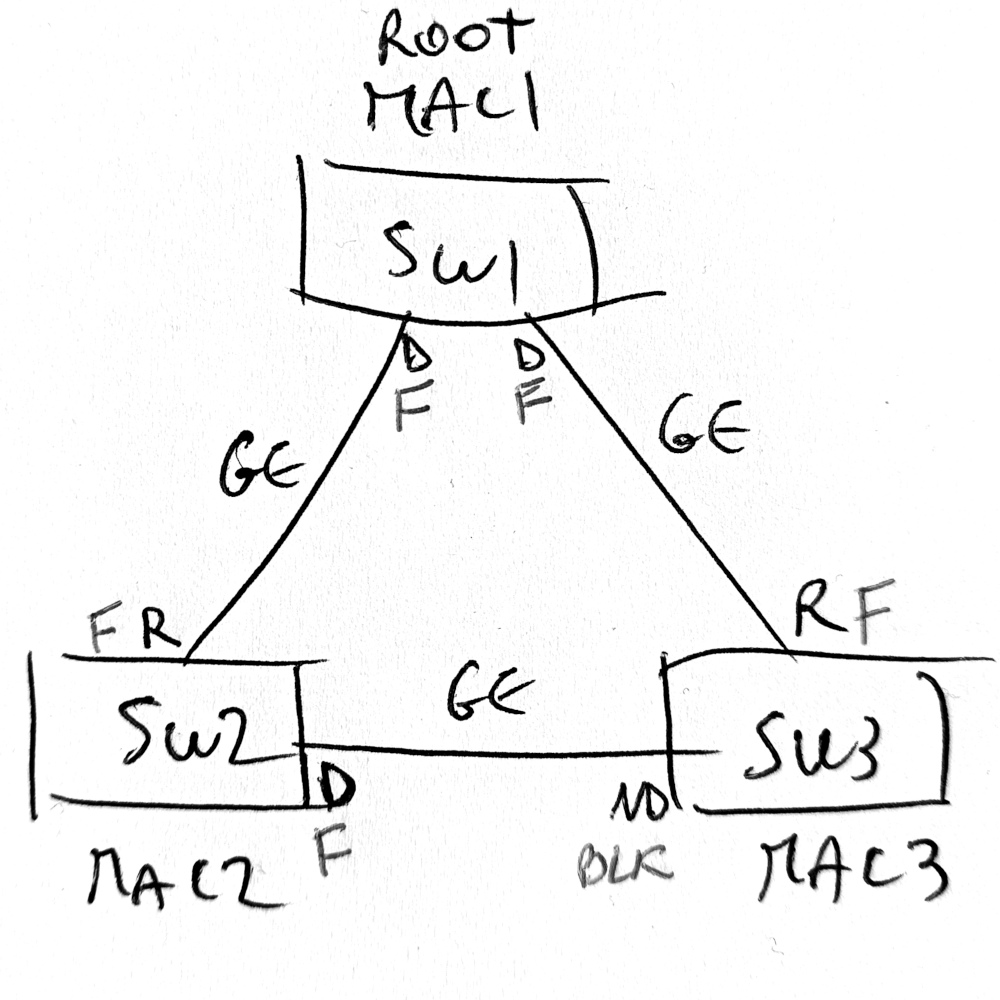 ROOT
MAC1
SW1
D D
F F
GE GE
F R R F
GE
SW2 SW3
D ND
F BLK
MAC2 MAC3